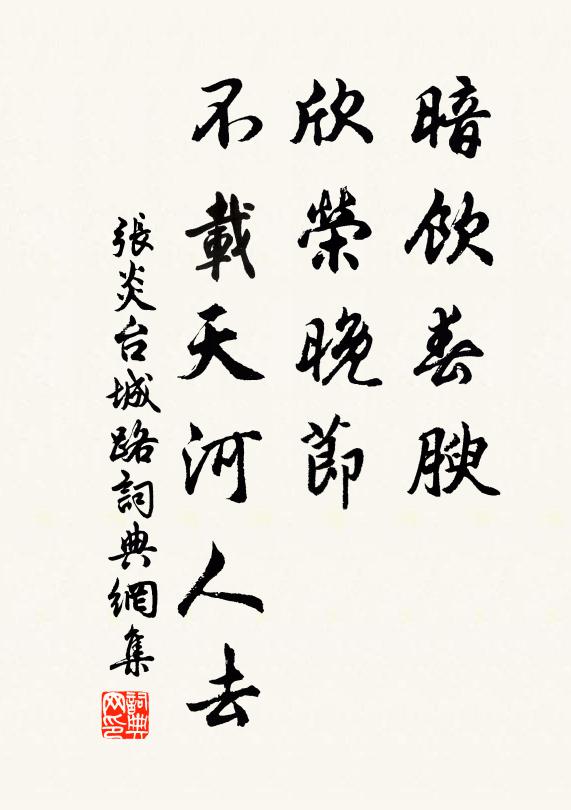 暗飲春腴
欣榮晚節
不載天河人去
張炎台城路詞典網集
詞典网印